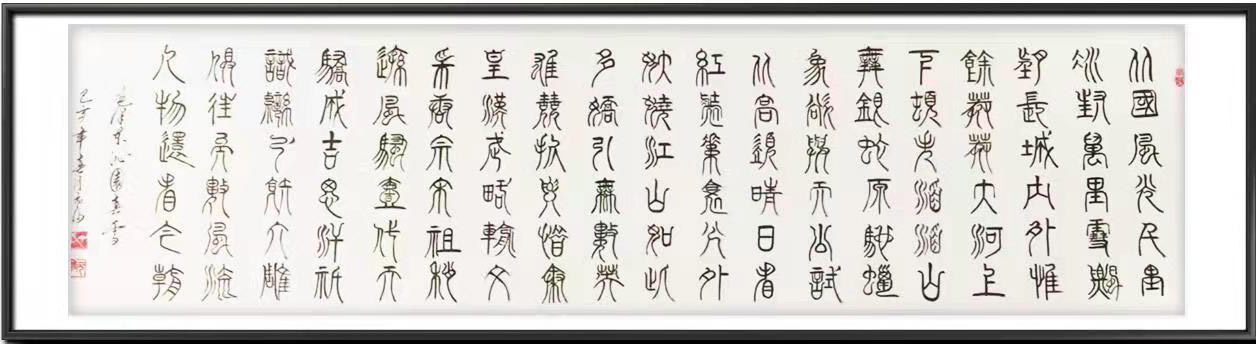 北國風光千里
冰封萬里雪飄
望長城內外惟
餘莽莽大河上
下頓失滔滔山
舞銀蛇原馳蠟
象欲與天公試
比高須晴日看
紅裝素裹分外
妖嬈江山如此
多嬌引無數英
雄競折腰惜秦
皇漢武略輸文
采唐宗宋祖稍
遜風騷壹代天
驕成吉思汗祇
識彎弓射大雕
俱往矣數風流
人物還看今朝
毛澤東沁園春雪
己亥年